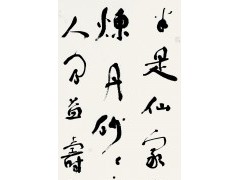 是仙家
煉丹砂
人益壽